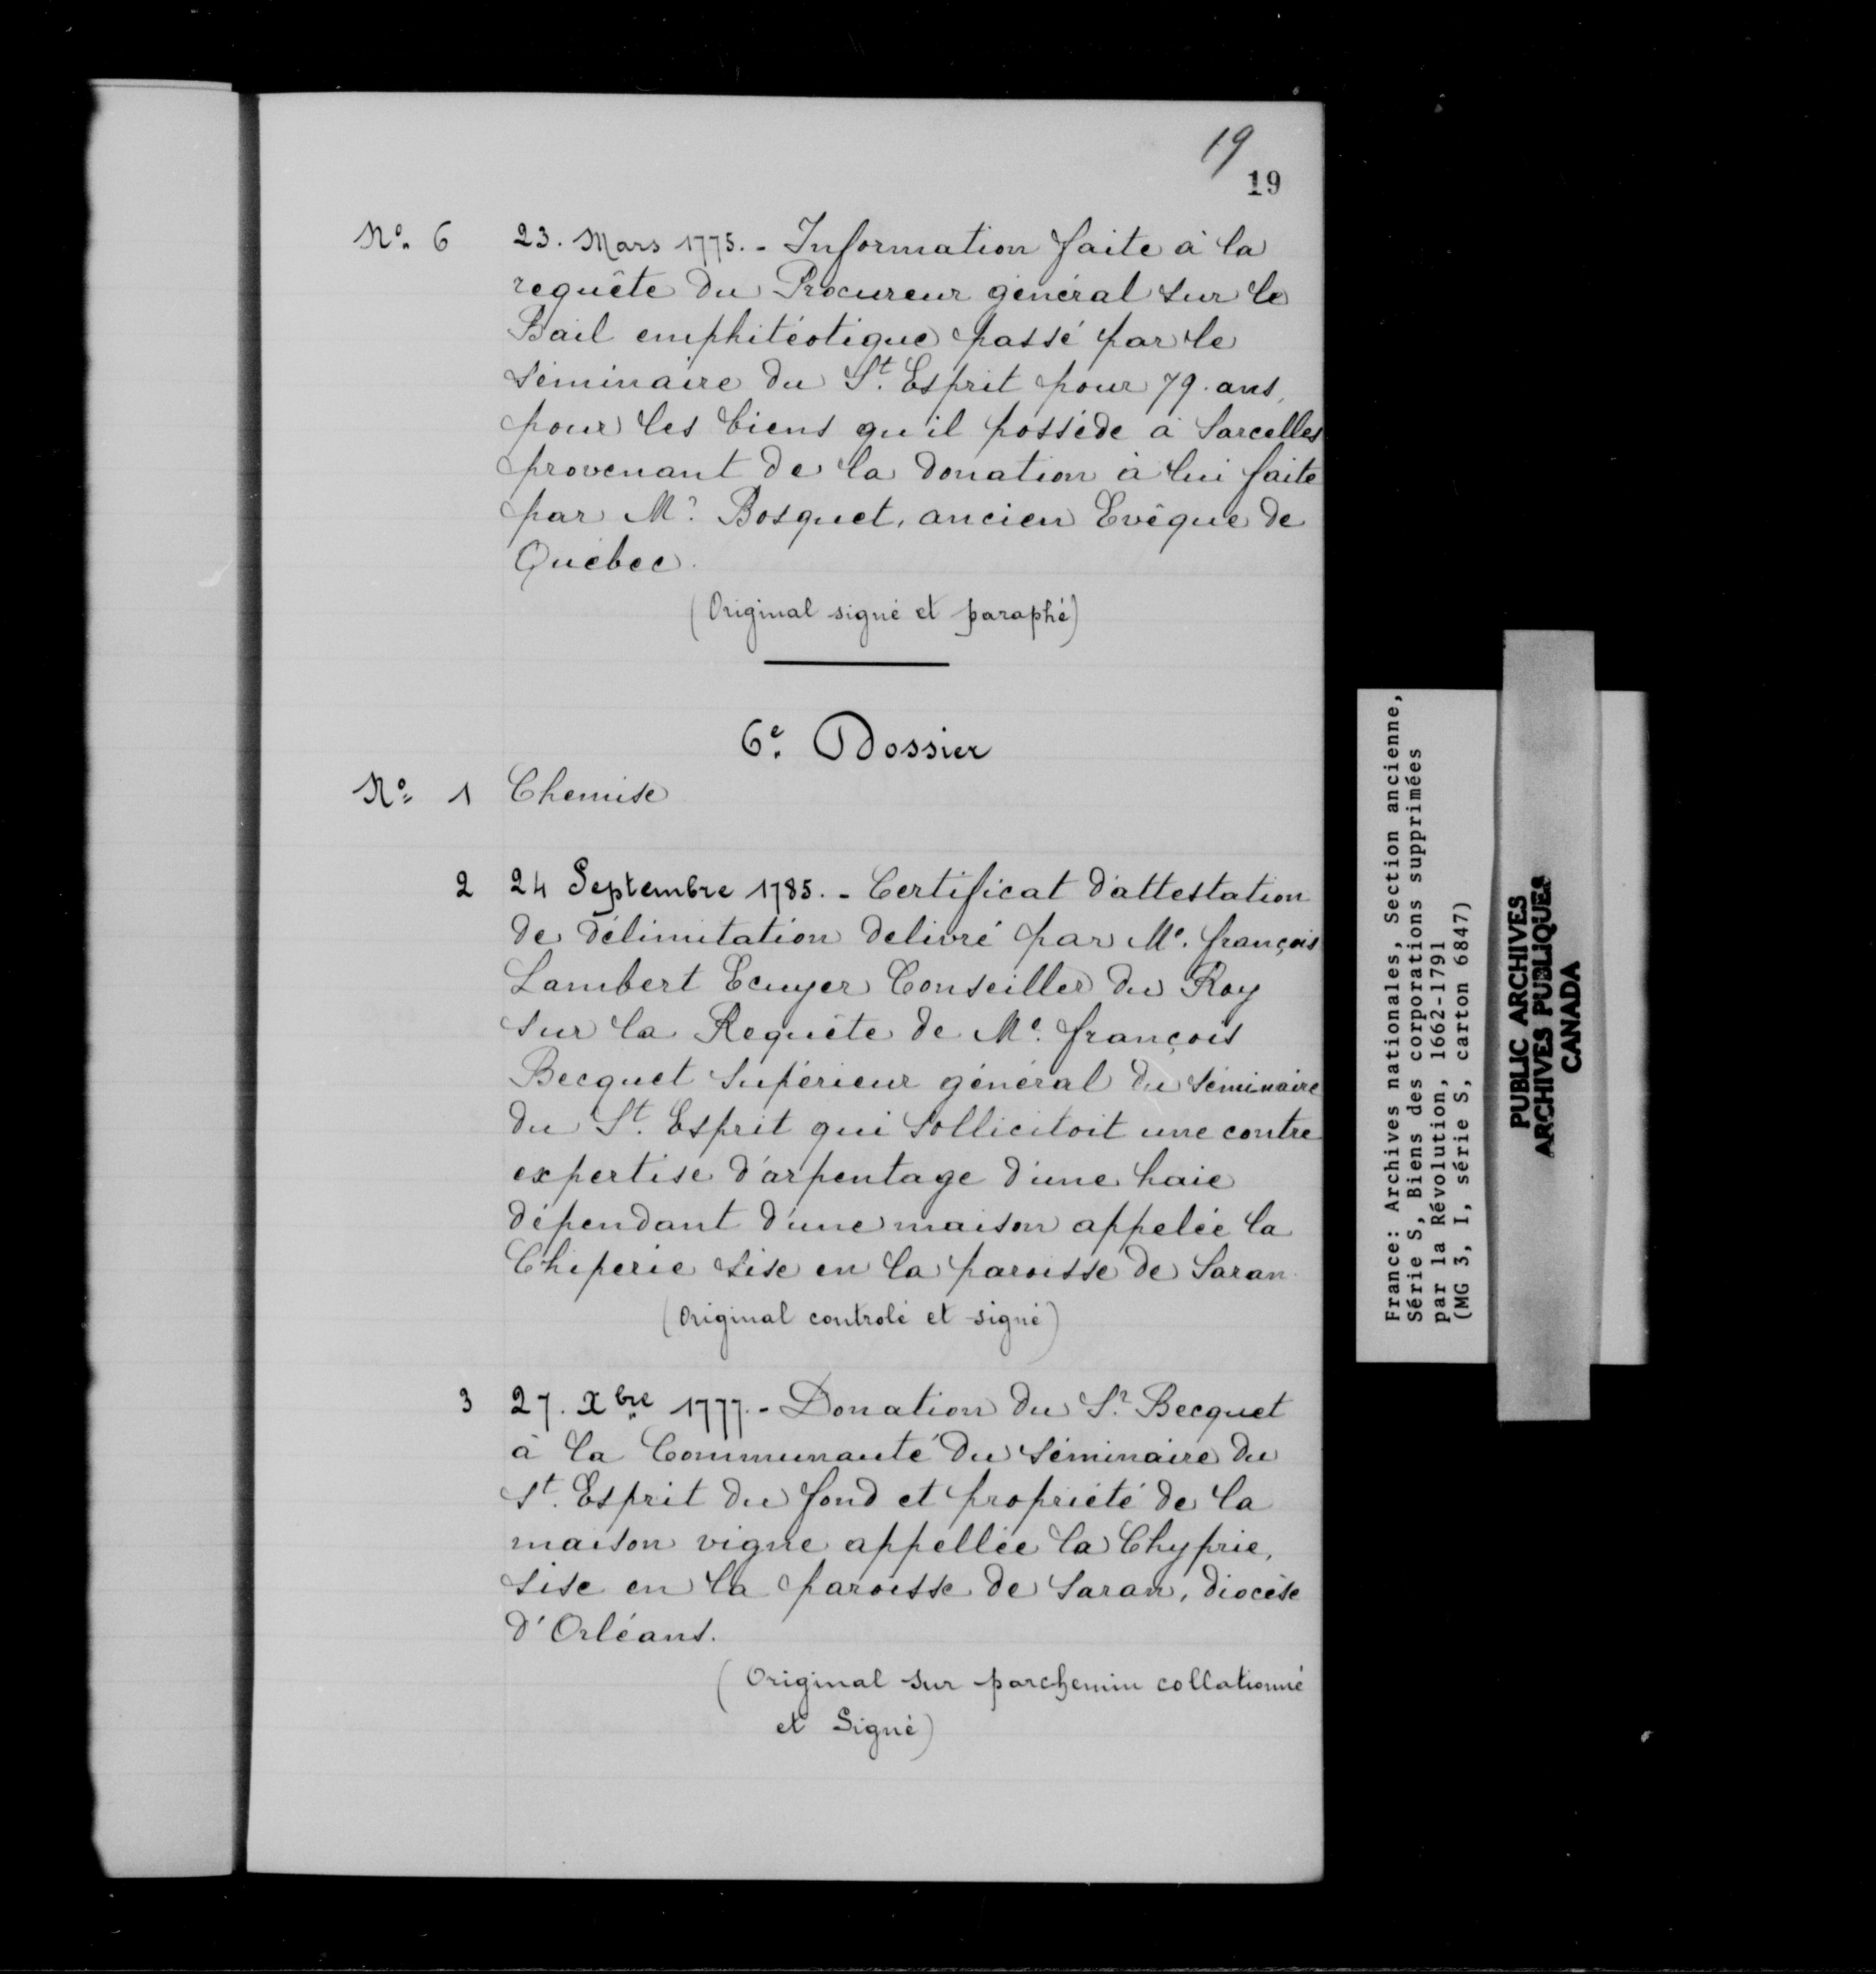 19
19
Nº 6 23. Mars 1775. - Information faite à la
requête du Procureur général sur le
Bail emphitéotique passé par le
séminaire du St. Esprit pour 79. ans,
pour les biens qu'il posséde à Sarcelles
provenant de la donation à lui faite
par Mr. Bosquet, ancien Evêque de
Québec.
(Original signé et paraphé)
6e. Dossier
Nº 1 Chemise
2 24 Septembre 1785. - Certificat d'attestation
de délimitation delivré par Me. françois
Lambert Ecuyer Conseiller du Roy
sur la Requête de Me. françois
Becquet supérieur général du séminaire
du St. Esprit qui sollicitoit une contre
expertise d'arpentage d'une haie
dépendant d'une maison appelée la
Chiperie sise en la paroisse de Saran
(Original controlé et signé)
3 27. Xbre 1777. - Donation du Sr. Becquet
à la Communauté du séminaire du
St. Esprit du fond et propriété de la
maison vigne appellée la Chyprie,
sise en la paroisse de Saran, diocèse
d'Orléans.
(Original sur parchemin collationné
et Signé)
France: Archives nationales, Section ancienne,
Série S, Biens des corporations supprimées
par la Révolution, 1662-1791
(MG 3, I, série S, carton 6847)
PUBLIC ARCHIVES
ARCHIVES PUBLIQUES
CANADA